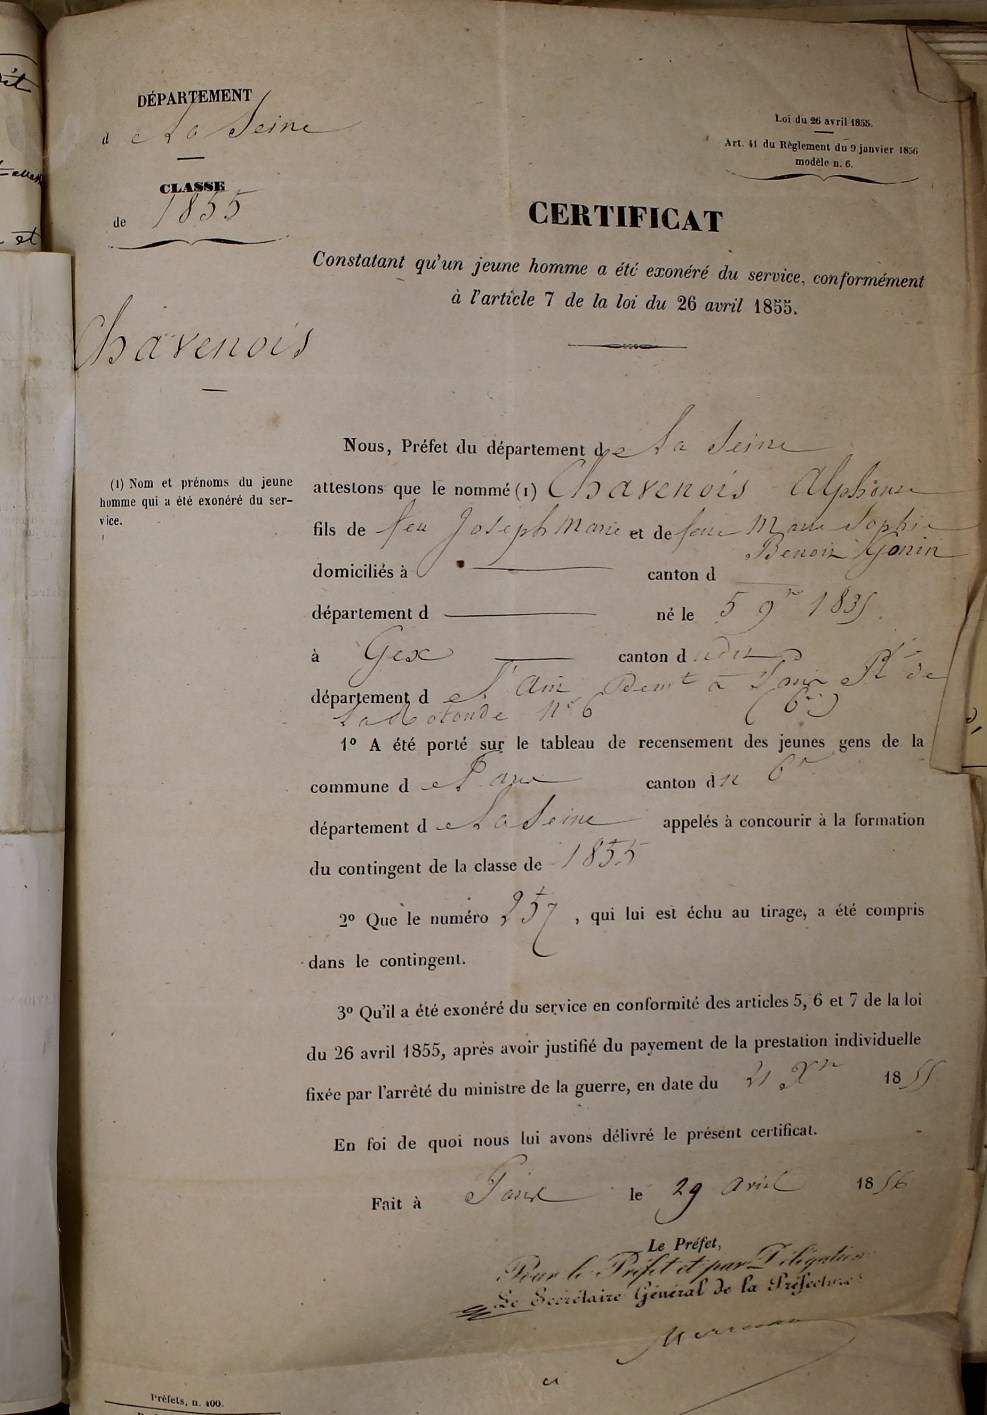 DÉPARTEMENT
de La Seine
CLASSE
de 1855
Chavenois
Loi du 26 avril 1855.
Art. 41 du Règlement du 9 janvier 1856
modèle n. 6.
CERTIFICAT
Constatant qu'un jeune homme a été exonéré du service, conformément
à l'article 7 de la loi du 26 avril 1855.
(1) Nom et prénoms du jeune
homme qui a été exonéré du ser-
vice.
Nous, Préfet du département de La Seine
attestons que le nommé (1) Chavenois Alphonse
fils de feu Joseph Marie et de feue Marie Sophie
Benoit Gonin
domiciliés à canton d
département d né le 5 9re 1835
à Gex canton d udit
département de l'Ain Demt à Paris Rt de
La Rotonde no 6 (6e)
1o A été porté sur le tableau de recensement des jeunes gens de la
commune de Paris canton du 6e
département de La Seine appelés à concourir à la formation
du contingent de la classe de 1855
2o Que le numéro 257, qui lui est échu au tirage, a été compris
dans le contingent.
3o Qu'il a été exonéré du service en conformité des articles 5, 6 et 7 de la loi
du 26 avril 1855, après avoir justifié du payement de la prestation individuelle
fixée par l'arrêté du ministre de la guerre, en date du 21 Xre 1855
En foi de quoi nous lui avons délivré le présent certificat.
Fait à Paris le 29 avril 1856
Le Préfet,
Pour le Préfet et par Délégation
Le Secrétaire Général de la Préfecture
Préfets, n. 400.